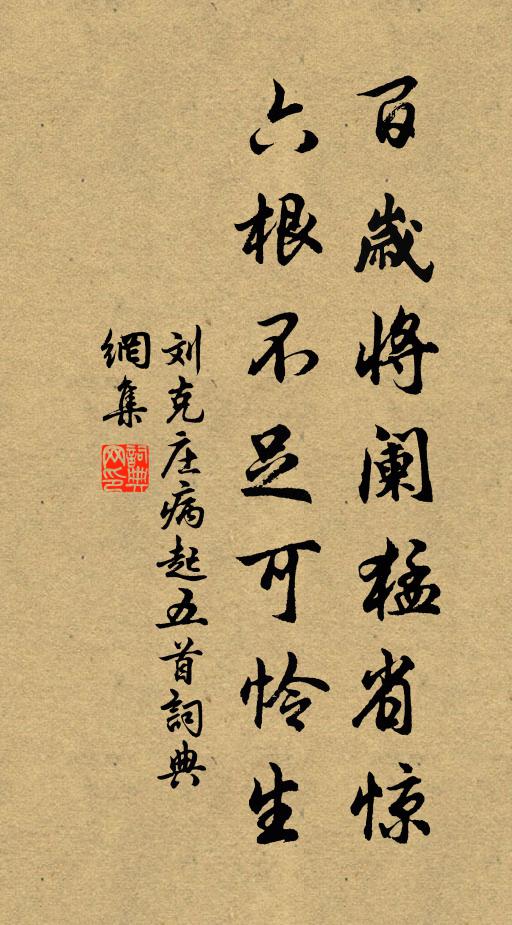 百歲将阑猛省惊
六根不足可怜生
刘克庄病起五首詞典
網集
詞典
网印